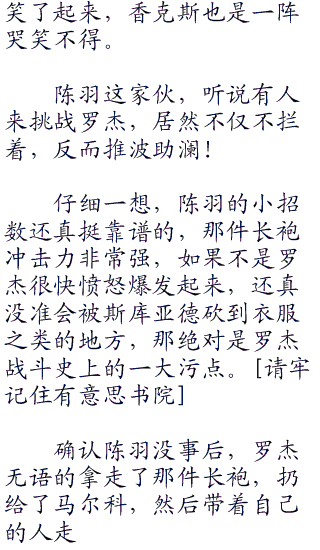 笑了起来，香克斯也是一阵
哭笑不得。
陈羽这家伙，听说有人
来挑战罗杰，居然不仅不拦
着，反而推波助澜！
仔细一想，陈羽的小招
数还真挺靠谱的，那件长袍
冲击力非常强，如果不是罗
杰很快愤怒爆发起来，还真
没准会被斯库亚德砍到衣服
之类的地方，那绝对是罗杰
战斗史上的一大污点。[请牢
记住有意思书院]
确认陈羽没事后，罗杰
无语的拿走了那件长袍，扔
给了马尔科，然后带着自己
的人走